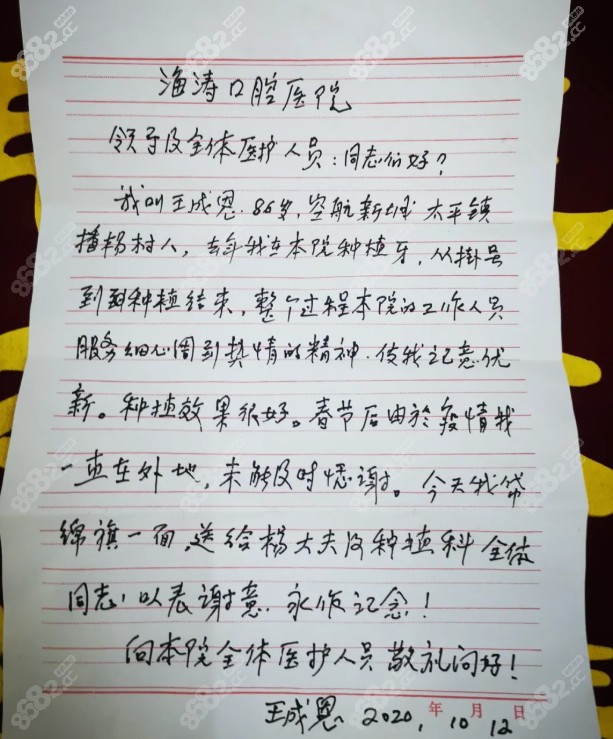 海涛口腔医院
领导及全体医护人员:同志们好?
我叫王成恩.86岁,空航新城 太平镇
搖杨村人,去年我在本院种植牙,从掛号
到到种植结束,整个过程本院的工作人员
服务细心周到热情的精神.使我记意优
新。种植效果很好。春节后由於疫情我
一直在外地,未能及时感谢。今天我带
绵旗一面,送给杨大夫及种植科全体
同志,以表谢意.永作记念!
向本院全体医护人员敬礼问好!
王成恩 2020年10月12日
8682.CC
8682.CC
8682.CC
8682.CC
8682.CC
8682.CC
8682.CC
8682.CC